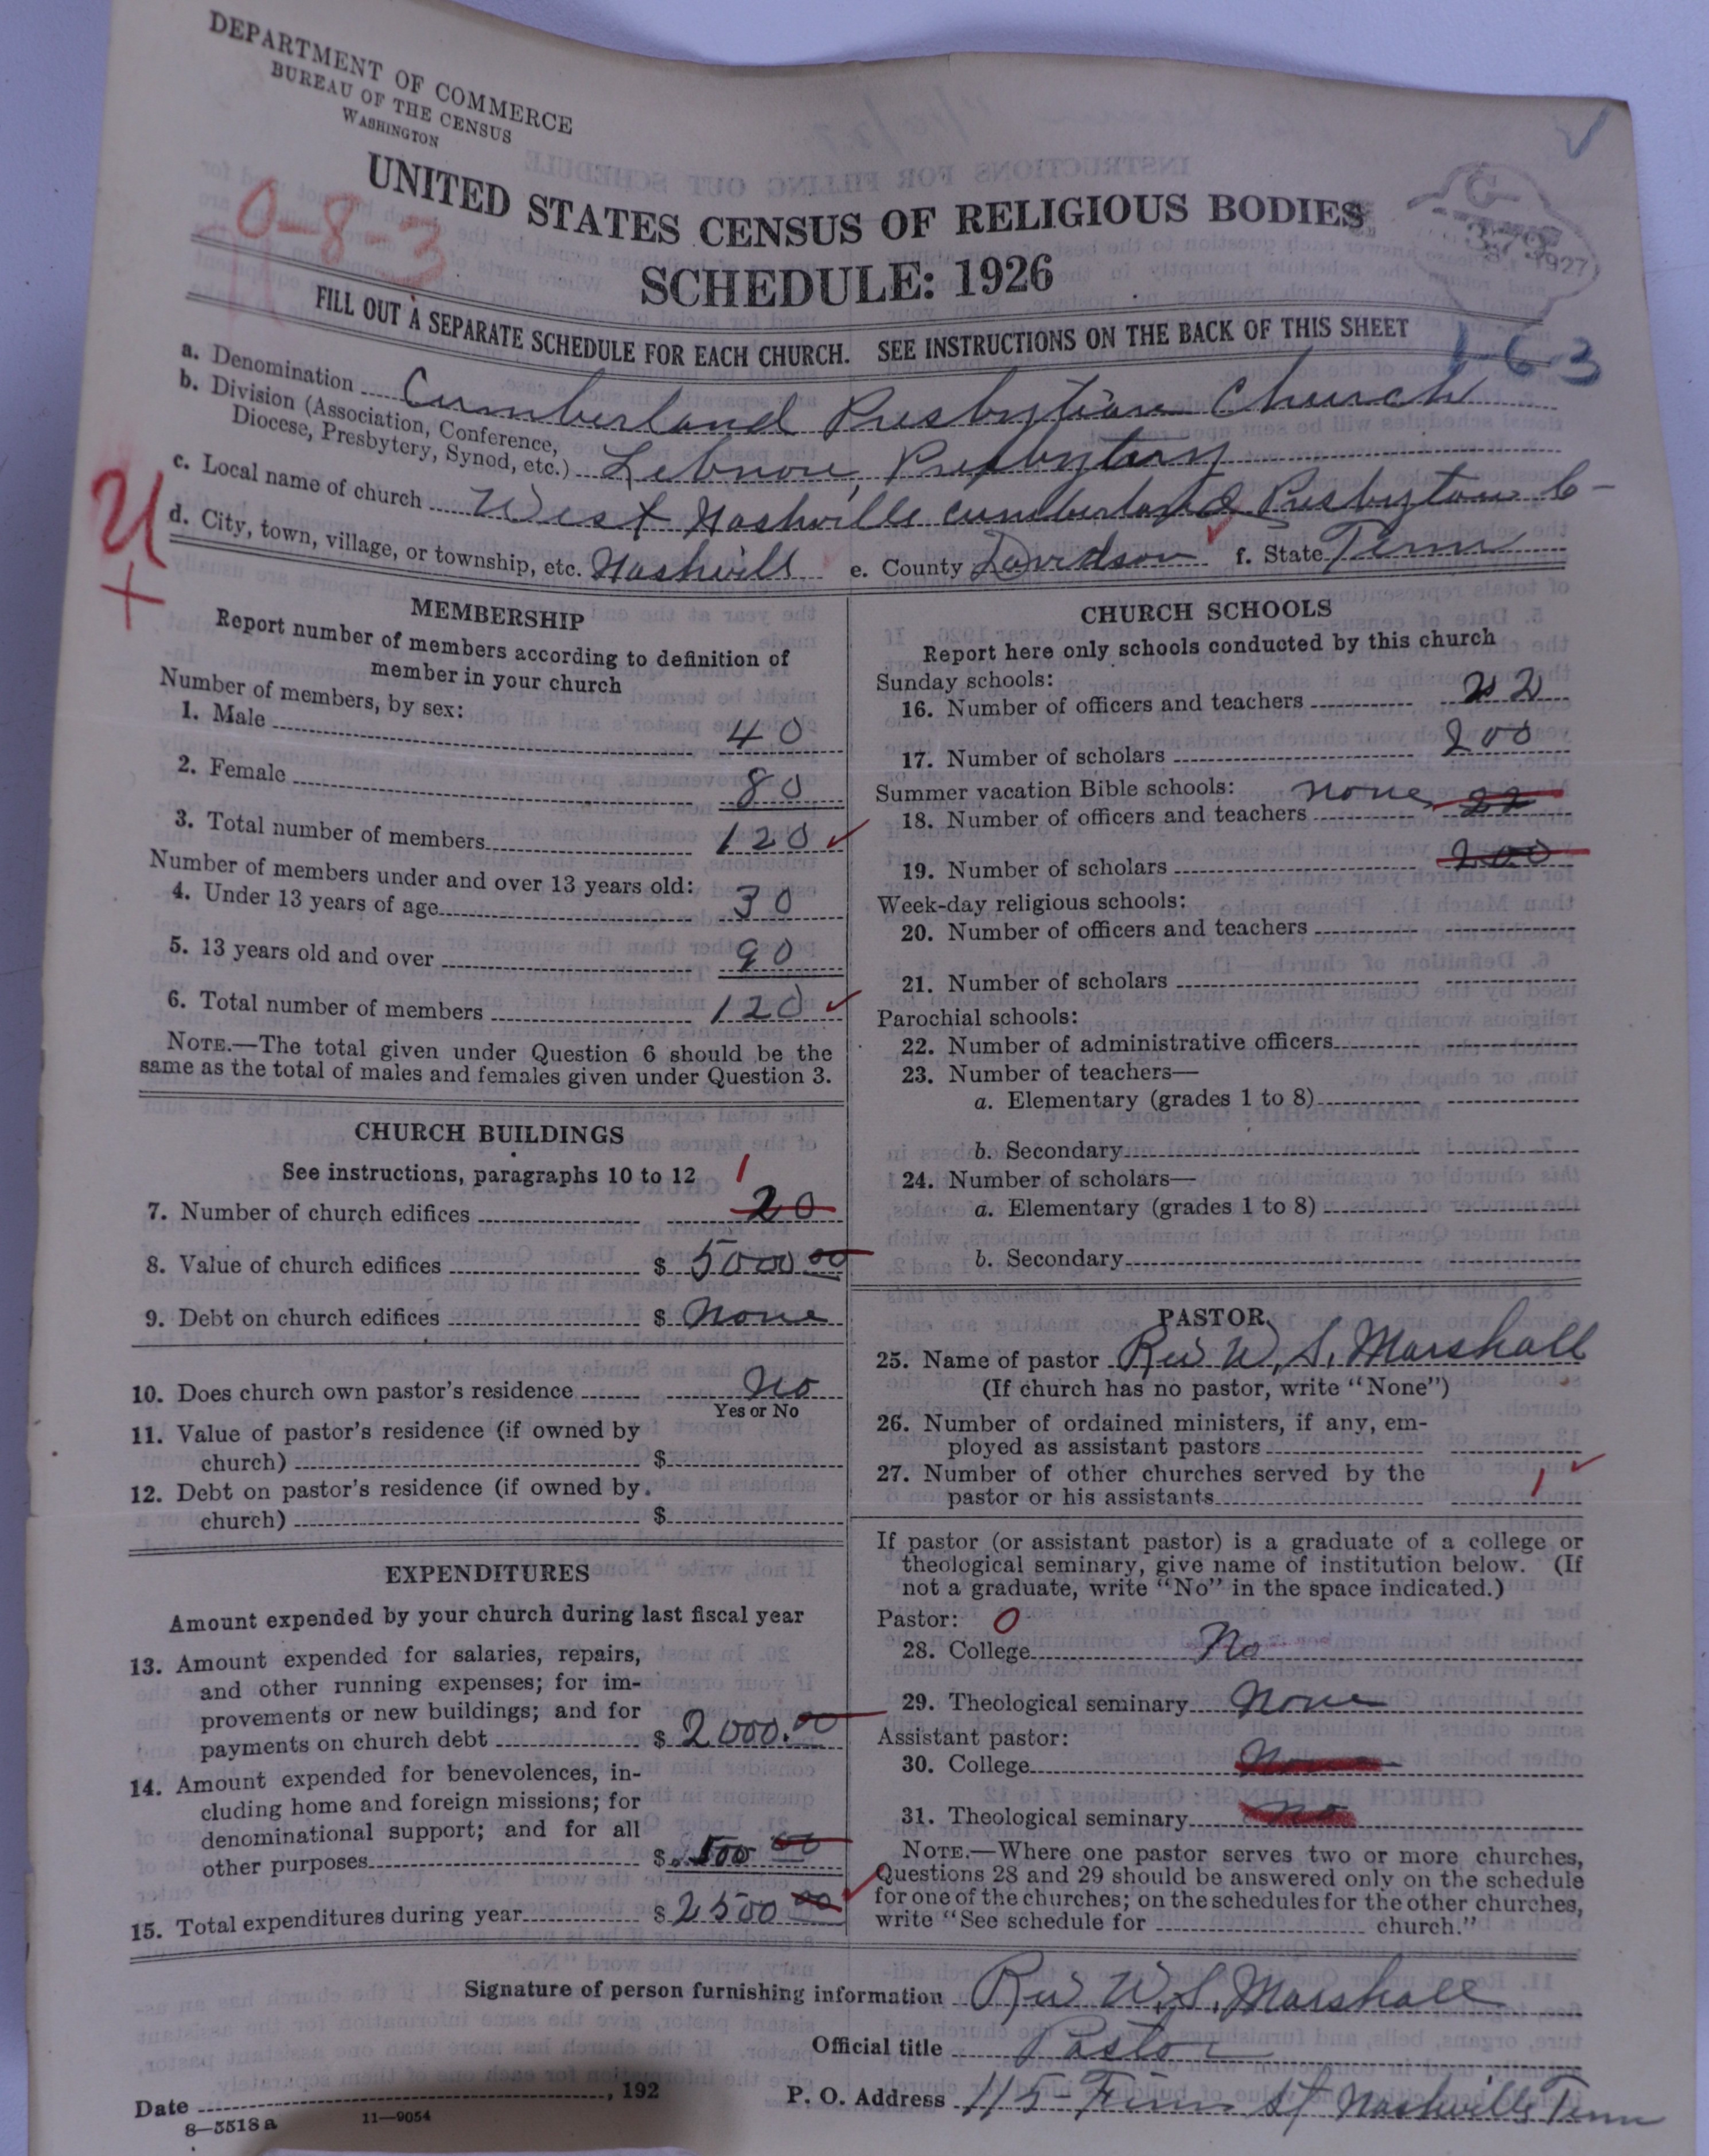 DEPARTMENT OF COMMERCE
BUREAU OF THE CENSUS
WASHINGTON
UNITED STATES CENSUS OF RELIGIOUS BODIES
SCHEDULE: 1926
0-8-3
G-
379
1927
FILL OUT A SEPARATE SCHEDULE FOR EACH CHURCH. SEE INSTRUCTIONS ON THE BACK OF THIS SHEET
1-63
a. Denomination Cumberland Presbytian Church
b. Division (Association, Conference, Diocese, Presbytery, Synod, etc.) Lebnon, Presbytary
c. Local name of church West Nashville Cumberland Presbytian C-
d. City, town, village, or township, etc. Nashvill e. County Davidson f. State Tenn
MEMBERSHIP
Report number of members according to definition of
member in your church
Number of members, by sex:
1. Male 40
2. Female 80
3. Total number of members 120
Number of members under and over 13 years old:
4. Under 13 years of age 30
5. 13 years old and over 90
6. Total number of members 120
NOTE.—The total given under Question 6 should be the
same as the total of males and females given under Question 3.
CHURCH BUILDINGS
See instructions, paragraphs 10 to 12
1
7. Number of church edifices 20
8. Value of church edifices $ 5000 00
9. Debt on church edifices $ None
10. Does church own pastor's residence No
Yes or No
11. Value of pastor's residence (if owned by
church) $
12. Debt on pastor's residence (if owned by
church) $
EXPENDITURES
Amount expended by your church during last fiscal year
13. Amount expended for salaries, repairs,
and other running expenses; for im-
provements or new buildings; and for
payments on church debt $ 2000.00
14. Amount expended for benevolences, in-
cluding home and foreign missions; for
denominational support; and for all
other purposes $ 500 00
15. Total expenditures during year $ 2500 00
CHURCH SCHOOLS
Report here only schools conducted by this church
Sunday schools:
16. Number of officers and teachers 22
17. Number of scholars 200
Summer vacation Bible schools: none
18. Number of officers and teachers 22
19. Number of scholars 200
Week-day religious schools:
20. Number of officers and teachers
21. Number of scholars
Parochial schools:
22. Number of administrative officers
23. Number of teachers—
a. Elementary (grades 1 to 8)
b. Secondary
24. Number of scholars—
a. Elementary (grades 1 to 8)
b. Secondary
PASTOR
25. Name of pastor Rev W. S. Marshall
(If church has no pastor, write "None")
26. Number of ordained ministers, if any, em-
ployed as assistant pastors
27. Number of other churches served by the
pastor or his assistants 1
If pastor (or assistant pastor) is a graduate of a college or
theological seminary, give name of institution below. (If
not a graduate, write "No" in the space indicated.)
Pastor: 0
28. College No
29. Theological seminary None
Assistant pastor:
30. College
31. Theological seminary no
NOTE.—Where one pastor serves two or more churches,
Questions 28 and 29 should be answered only on the schedule
for one of the churches; on the schedules for the other churches,
write "See schedule for church."
Signature of person furnishing information Rev W. S. Marshall
Official title Pastor
Date , 192 P. O. Address 115- St Nashville Tenn
8-5518 a 11-9054